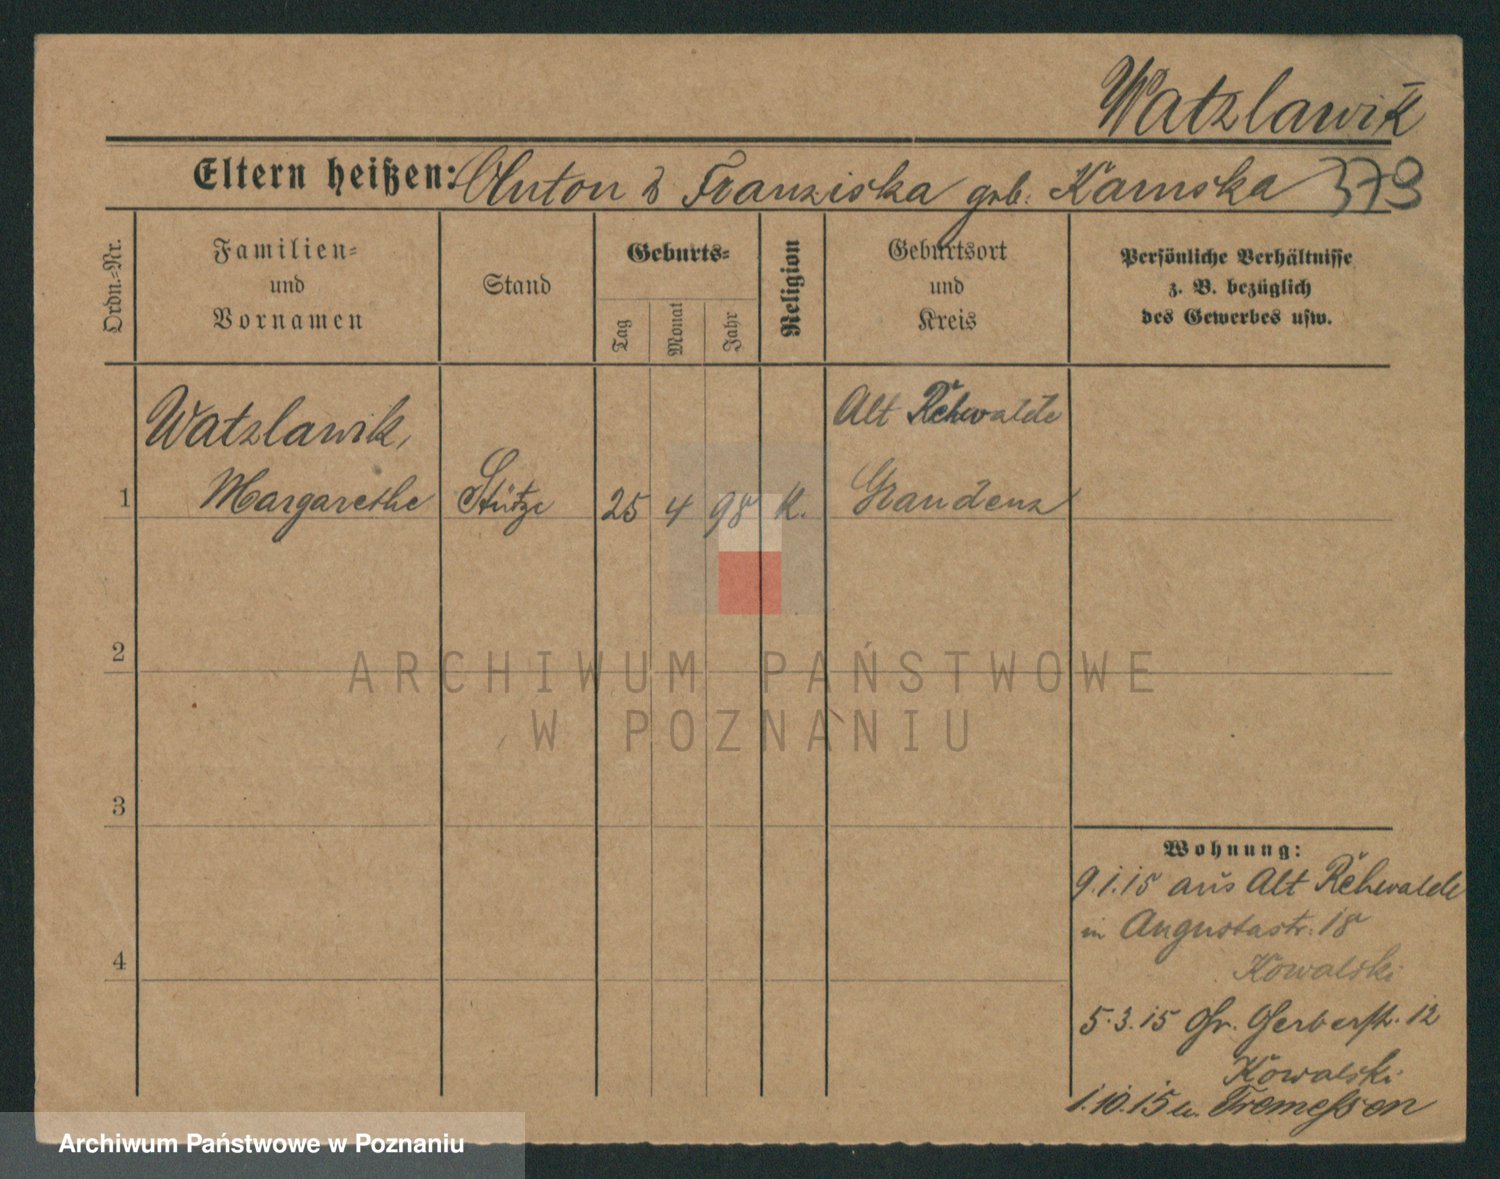 Watzlawik
Eltern heißen: Anton & Franziska geb. Kamska 379
Ordn.-Nr.
Familien- und Vornamen
Stand
Geburts-
Tag
Monat
Jahr
Religion
Geburtsort und Kreis
Persönliche Verhältnisse
z. B. bezüglich
des Gewerbes usw.
Watzlawik, Alt Rehwalde
1 Margarethe Stütze 25 4 98 K. Graudenz
2
ARCHIWUM PAŃSTWOWE
W POZNANIU
3
Wohnung:
9.1.15 aus Alt Rehwalde
in Augustastr. 18
4
Kowalski
5.3.15 Gr. Gerberstr. 12
Kowalski
1.10.15 n. Tremessen
Archiwum Państwowe w Poznaniu